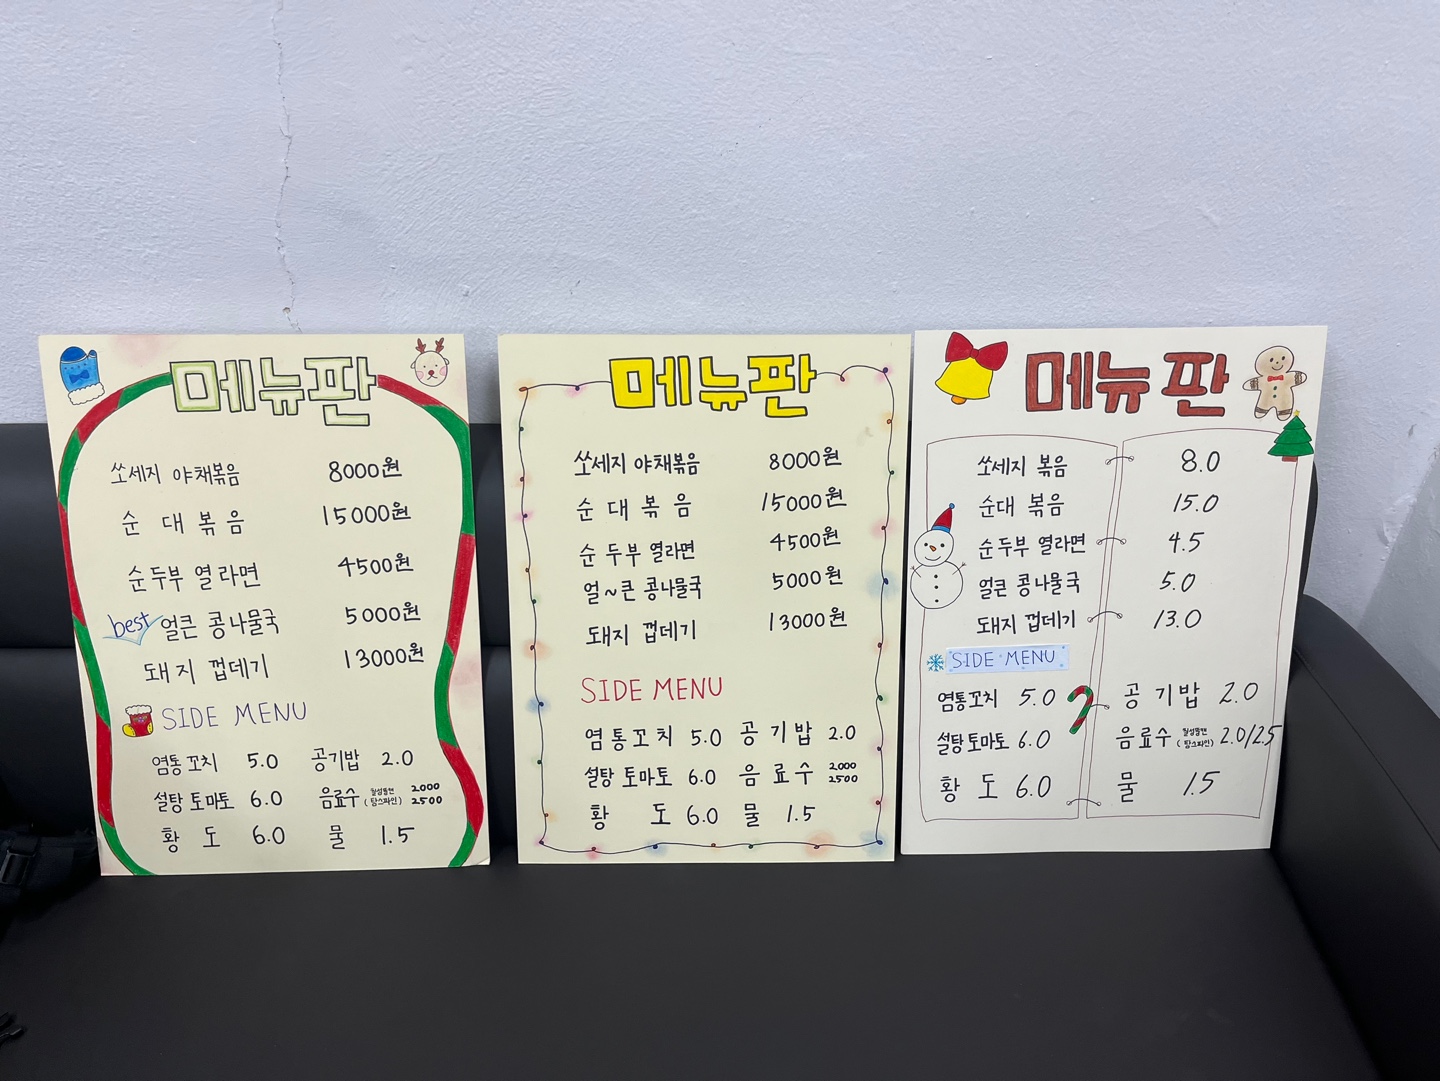 메뉴판
쏘세지 야채볶음 8000원
순 대 볶 음 15000원
순두부 열라면 4500원
best 얼큰 콩나물국 5000원
돼지 껍데기 13000원
SIDE MENU
염통꼬치 5.0 공기밥 2.0
설탕 토마토 6.0 음료수 2000 2500
황 도 6.0 물 1.5
메뉴판
쏘세지 야채볶음 8000원
순 대 볶 음 15000원
순 두부 열라면 4500원
얼~큰 콩나물국 5000원
돼지 껍데기 13000원
SIDE MENU
염통꼬치 5.0 공 기 밥 2.0
설탕 토마토 6.0 음 료 수 2000 2500
황 도 6.0 물 1.5
메뉴판
쏘세지 볶음 8.0
순대 볶음 15.0
순두부 열라면 4.5
얼큰 콩나물국 5.0
돼지 껍데기 13.0
SIDE MENU
염통꼬치 5.0 공 기 밥 2.0
설탕 토마토 6.0 음료수 2.0/2.5
황 도 6.0 물 1.5